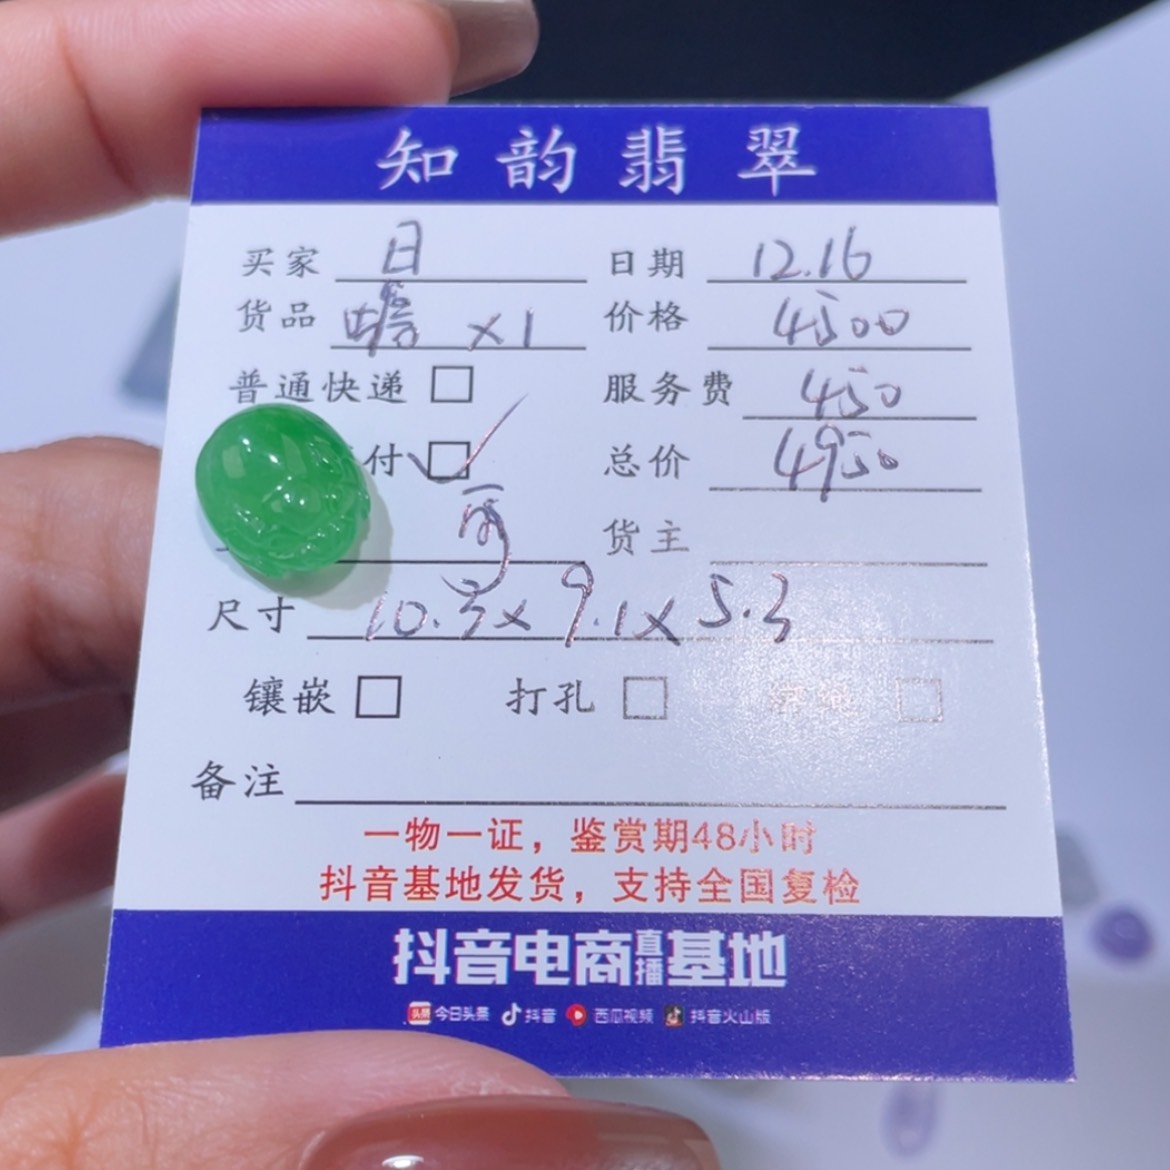 知韵翡翠
买家 日 日期 12.16
货品 蟾 x1 价格 4500
普通快递 服务费 450
付 总价 4950
货主
尺寸 10.3x9.1x5.3
镶嵌 打孔
备注
一物一证，鉴赏期48小时
抖音基地发货，支持全国复检
抖音电商直播基地
头条 今日头条 抖音 西瓜视频 抖音火山版